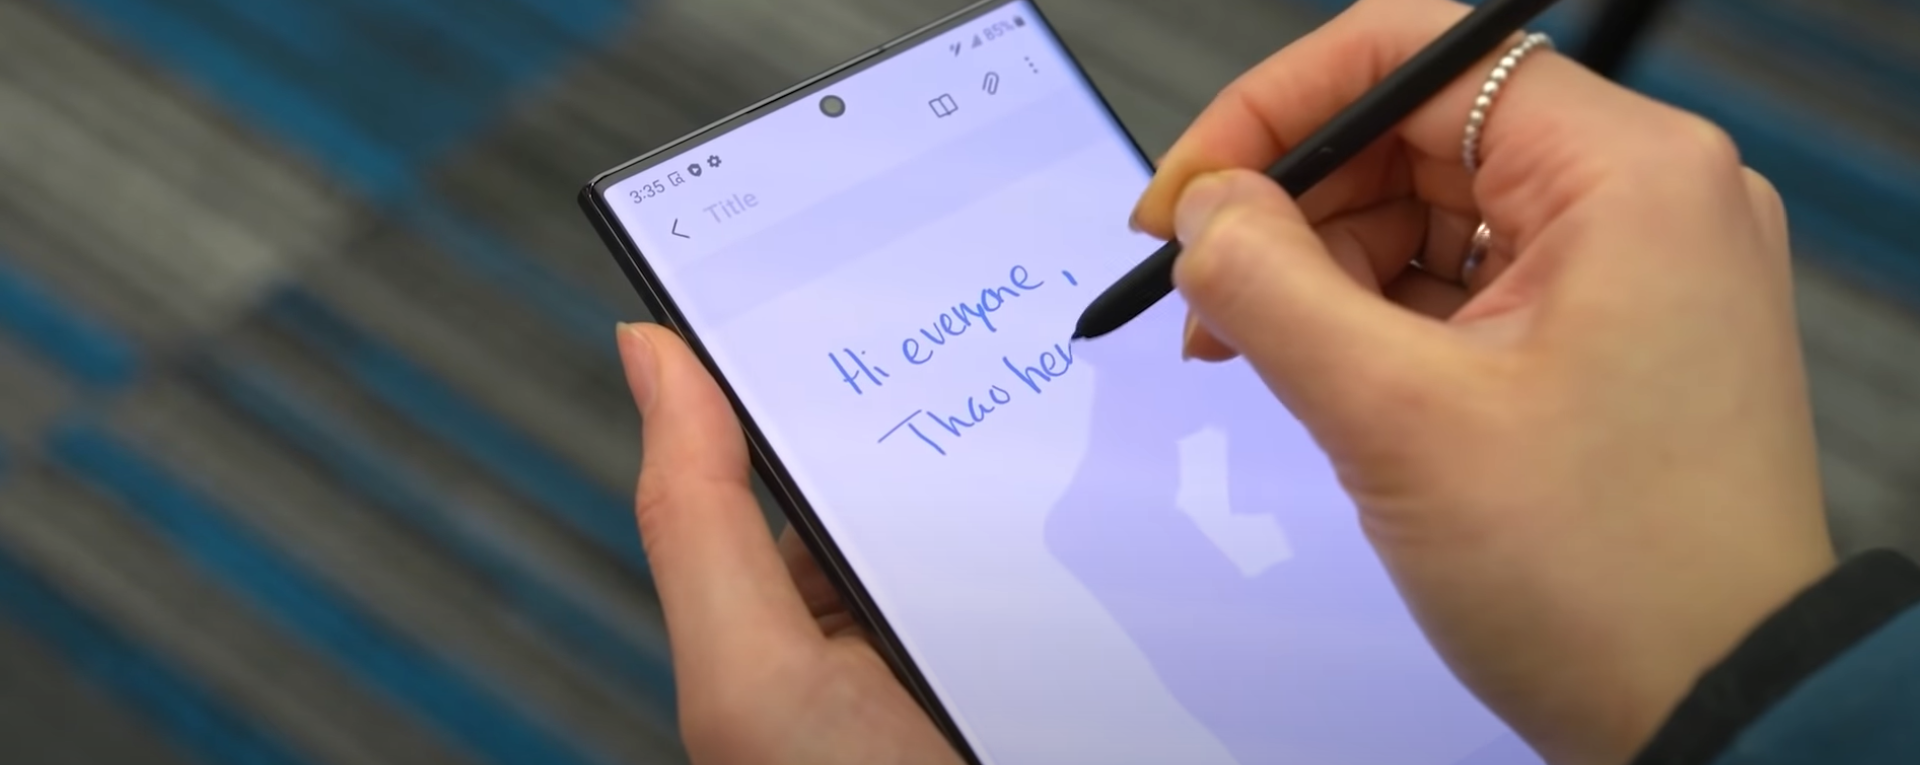 85%
3:35
Title
Hi everyone,
Thao her